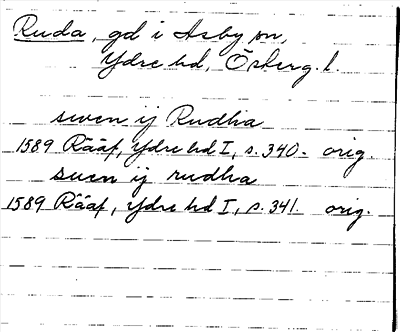 Ruda, gd i Asby sn,
Ydre hd, Österg. l.
swen ij Rudha
1589 Rääf, Ydre hd I, s. 340. orig.
suen ij rudha
1589 Rääf, Ydre hd I, s. 341. orig.